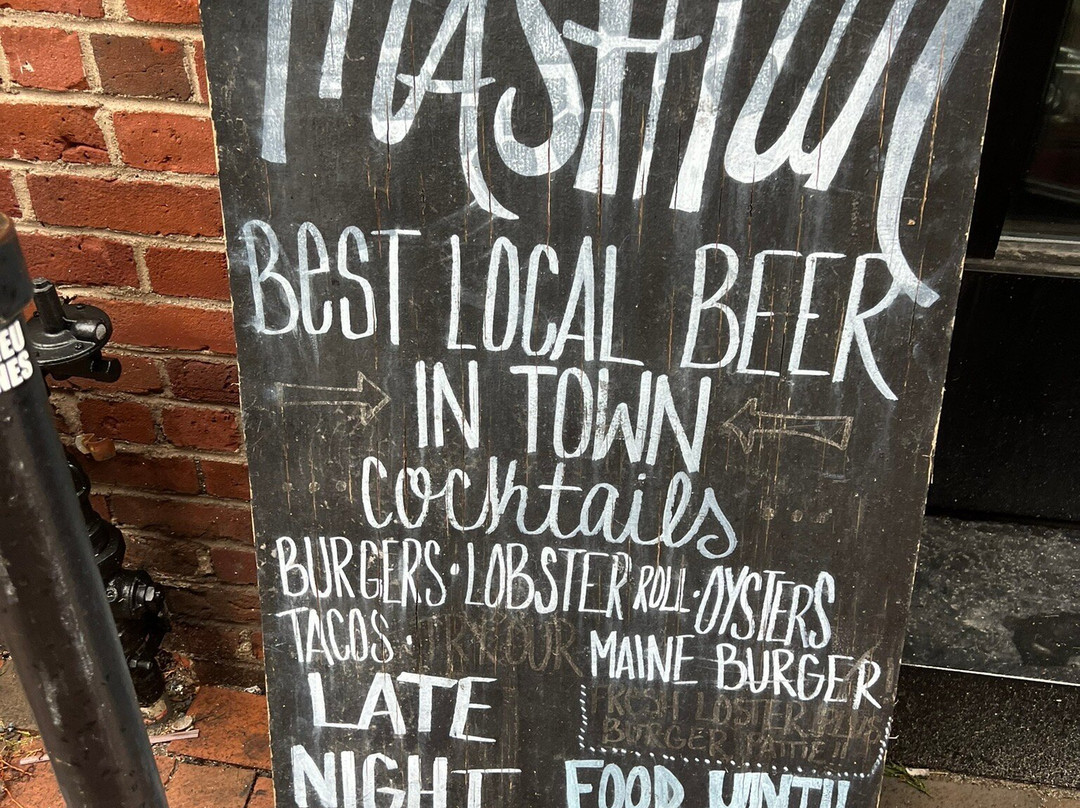 MASH TUN
BEST LOCAL BEER
IN TOWN
cocktails
BURGERS · LOBSTER ROLL · OYSTERS
TACOS · TRY OUR MAINE BURGER
FRESH LOSTER PLUS
BURGER PATTIE !!
LATE
NIGHT
FOOD UNTIL
EU
NES